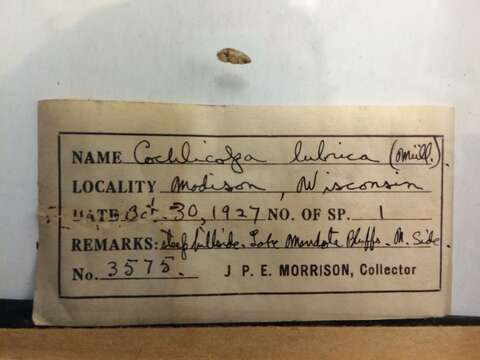 NAME Cochlicopa lubrica (Müll.)
LOCALITY Madison, Wisconsin
DATE Oct. 30, 1927 NO. OF SP. 1
REMARKS: steep hillside. Lake Mendota Bluffs. N. Side.
No. 3575. J P. E. MORRISON, Collector